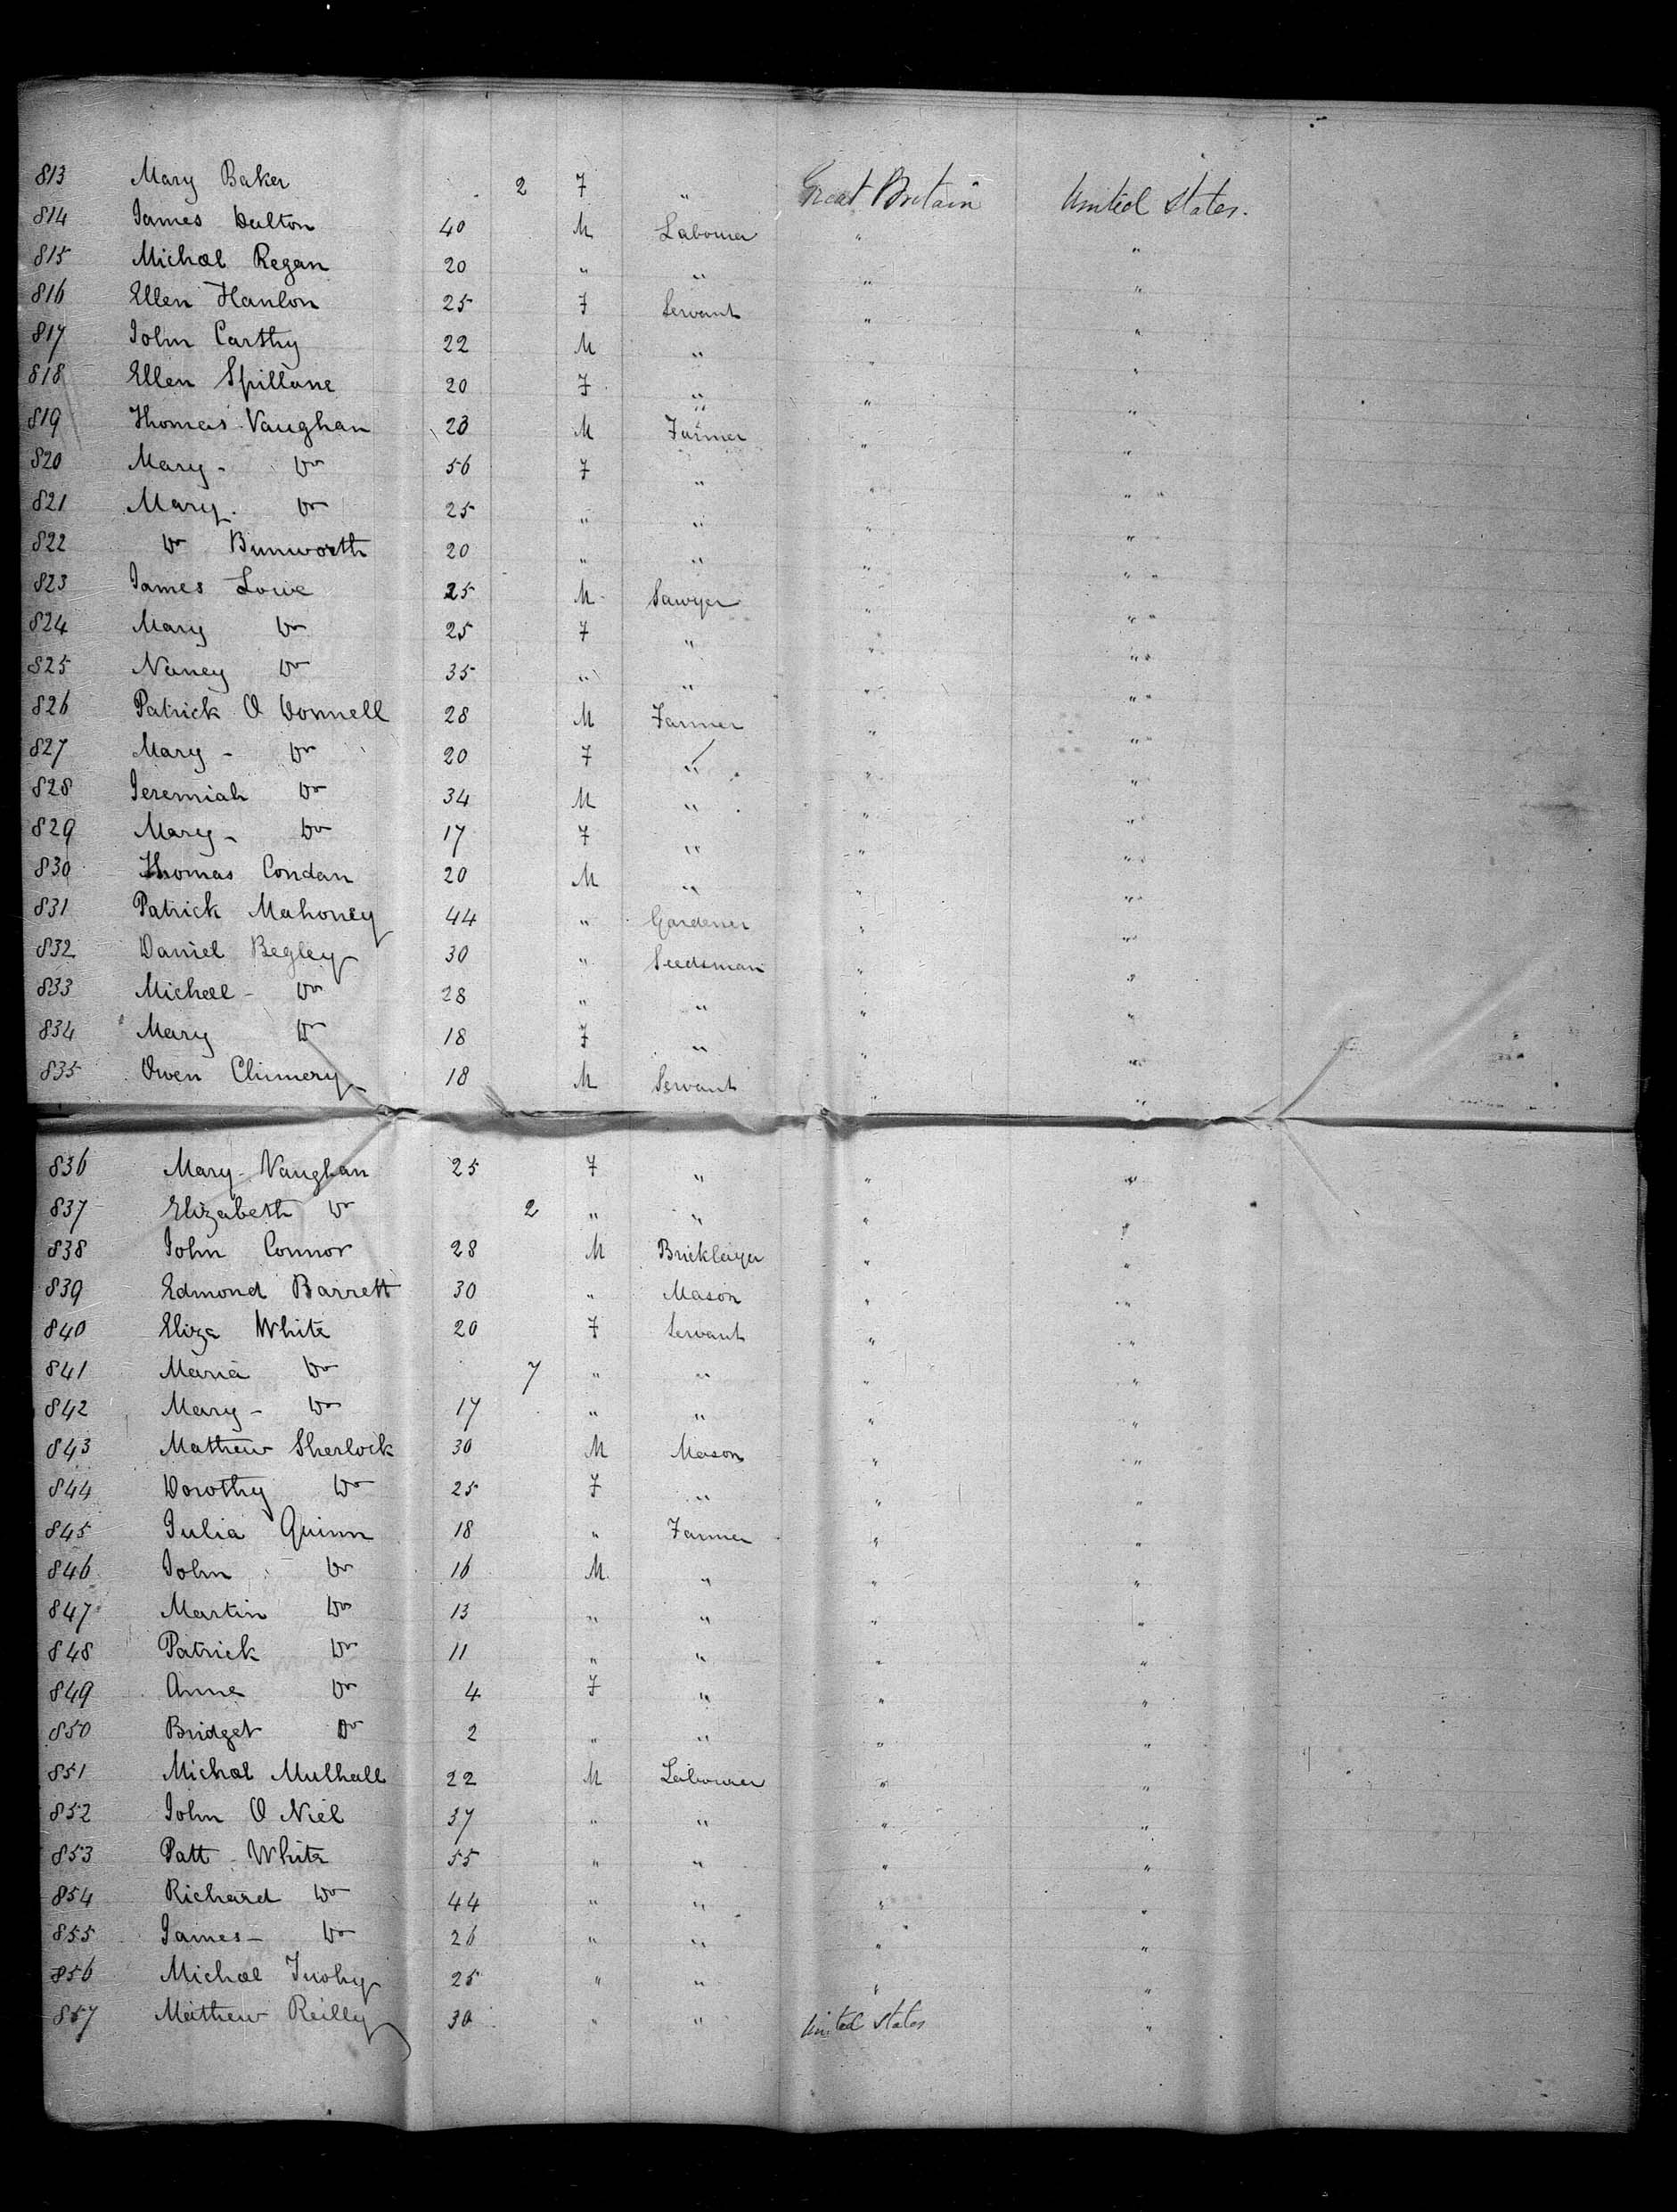 813 Mary Baker 2 F " Great Britain United States.
814 James Dalton 40 M Labourer " "
815 Michael Regan 20 " " " "
816 Ellen Hanlon 25 F Servant " "
817 John Carthy 22 M " " "
818 Ellen Spillane 20 F " " "
819 Thomas Vaughan 23 M Farmer " "
820 Mary - Do 56 F " " "
821 Mary - Do 25 " " " "
822 Do Bunworth 20 " " " "
823 James Lowe 25 M Sawyer " "
824 Mary Do 25 F " " "
825 Nancy Do 35 " " " "
826 Patrick O Donnell 28 M Farmer " "
827 Mary - Do 20 F " " "
828 Jeremiah Do 34 M " " "
829 Mary - Do 17 F " " "
830 Thomas Condan 20 M " " "
831 Patrick Mahoney 44 " Gardener " "
832 Daniel Begley 30 " Seedsman " "
833 Michael - Do 28 " " " "
834 Mary Do 18 F " " "
835 Owen Chimery 18 M Servant " "
836 Mary Vaughan 25 F " " "
837 Elizabeth Do 2 " " " "
838 John Connor 28 M Bricklayer " "
839 Edmond Barrett 30 " Mason " "
840 Eliza White 20 F Servant " "
841 Maria Do 7 " " " "
842 Mary - Do 17 " " " "
843 Mathew Sherlock 30 M Mason " "
844 Dorothy Do 25 F " " "
845 Julia Quinn 18 " Farmer " "
846 John Do 16 M " " "
847 Martin Do 13 " " " "
848 Patrick Do 11 " " " "
849 Anne Do 4 F " " "
850 Bridget Do 2 " " " "
851 Michael Mulhall 22 M Labourer " "
852 John O Niel 37 " " " "
853 Patt White 55 " " " "
854 Richard Do 44 " " " "
855 James - Do 26 " " " "
856 Michael Tuohy 25 " " " "
857 Mathew Reilly 30 " " United States "